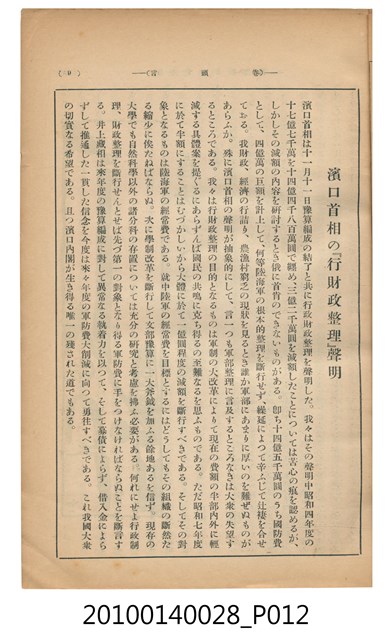 濱口首相の『行財政整理』聲明
濱口首相は十一月十一日豫算編成の結了と共に行政財政整理を聲明した。我々はその聲明中昭和四年度の
十七億七千萬を十四億四千八百萬圓で纏め、三億二千萬圓を減額したことについては苦心の痕を認めるが、
しかしその減額の内容を研討するとき俄に首肯のできないものがある。卽ち十四億五千萬圓のうち國防費
として、四億萬の巨額を計上して、何等陸海軍の根本的整理を斷行せず、繰延によつて辛ふじて辻褄を合せ
てゐる。我財政、經濟の行詰り、農漁村窮乏の現狀を見るとき誰か軍部にあまりに厚いのを難ぜぬものが
あらふか。殊に濱口首相の聲明が抽象的にして、言一つも軍部整理に言及するところなきは大衆の失望す
るところである。我々は行財政整理の目的となるものは軍制の大改革によりて現在の費額の半部内外に輕
減する具體案を提ぐるにあらずんば國民の共鳴に克ち得るの至難なるを思ふものである。ただ昭和七年度
に於て半額にすることはむづかしいから大體に於て一億圓程度の減額を斷行すべきである。そしてその對
象となるものは陸海軍の經常費である。就中陸軍の經常費を目標とするにはどうしてもその組織の斷然た
る縮少に俟たねばならぬ。次に學制改革を斷行して文部豫算に一大斧鉞を加ふる餘地あるを信ず。現存の
大學でも自然科學以外の諸分科の存置については充分の研究と考慮を拂ふ必要がある　何れにせよ行政制
理、財政整理を斷行せんとせば先づ第一の對象となり得る軍防費に手をつけなければならぬことを斷言す
る。井上藏相は來年度の豫算編成に對して異常なる執着力を以つて、そして募債によらず、借入金によら
ずして推通した一貫した信念を今度は來々年度の軍防費大削減に向つて勇往すべきである。これ我國大衆
の切實なる希望である。且つ濱口内閣が生き得る唯一の殘された道でもある。
20100140028_P012